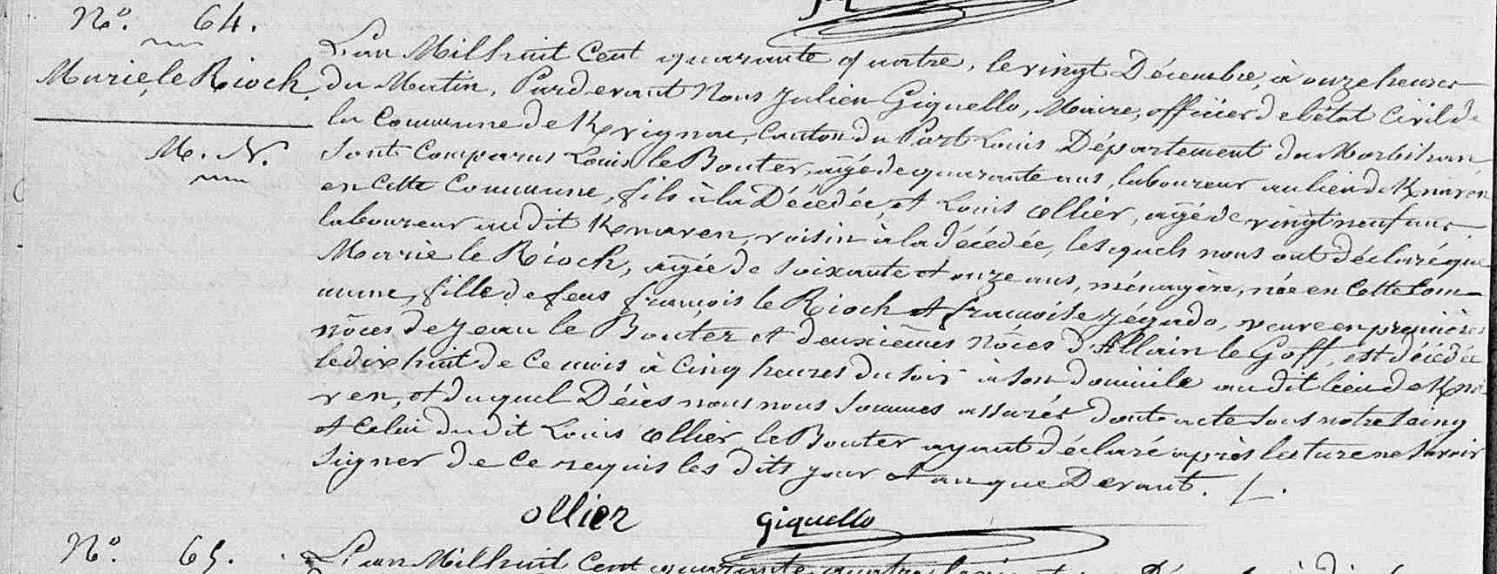 Nº. 64.
Marie, le Rioch.
M. N.
L'an Mil huit Cent quarante quatre, le vingt Décembre, à onze heures
du Matin, Pardevant Nous Julien Giquello, Maire, officier de l'état Civil de
la Commune de Kvignac, Canton du Port Louis Département du Morbihan
Sont Comparus Louis le Bouter, agé de quarante ans, laboureur au lieu de Knaren
en Cette Commune, fils à la Décédée, et Louis Ollier, agé de vingt neuf ans
laboureur au dit Knaren, voisin à la décédée, lesquels nous ont déclaré que
Marie le Rioch, agée de Soixante et onze ans, ménagère, née en Cette Com-
mune, fille de feus françois le Rioch et françoise Jégado, veuve en premières
nôces de Jean le Bouter et deuxièmes nôces d'Allain le Goff, est décédée
le dix huit de Ce mois à Cinq heures du Soir à Son domicile au dit lieu de Kna-
ren, et duquel Décès nous nous Sommes assurés dont acte Sous notre Seing
et Celui du dit Louis Ollier, le Bouter ayant déclaré après lecture ne Savoir
Signer de Ce requis les dits jour et an que Devant. /.
ollier giquello
Nº. 65. L'an Mil huit Cent quarante quatre